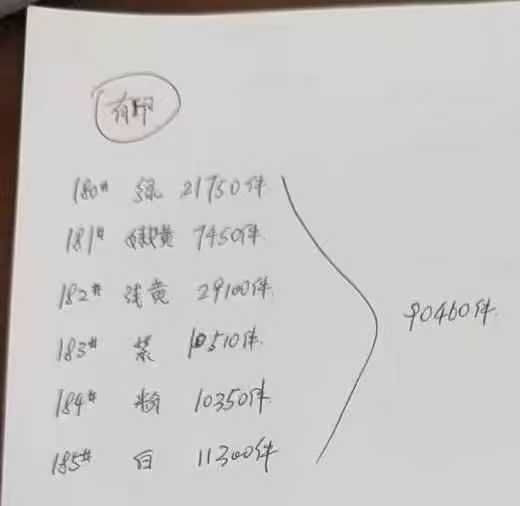 有印
180# 绿 21750件
181# 嫩黄 7450件
182# 浅黄 29100件
183# 紫 10510件
184# 粉 10350件
185# 白 11300件
90460件